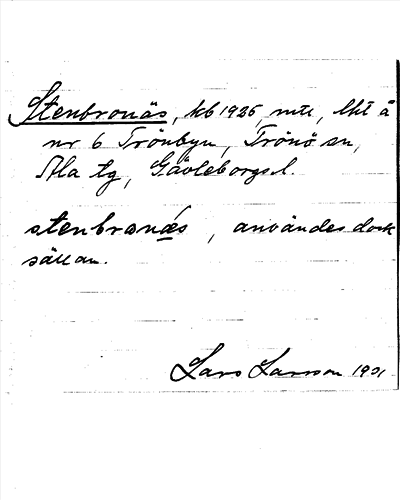 Stenbronäs, kb 1926, mtl, lht å
nr 6 Trönbyn, Trönö sn,
Ala tg, Gävleborgs l.
stenbranǽs, användes dock
sällan.
Lars Larsson 1931